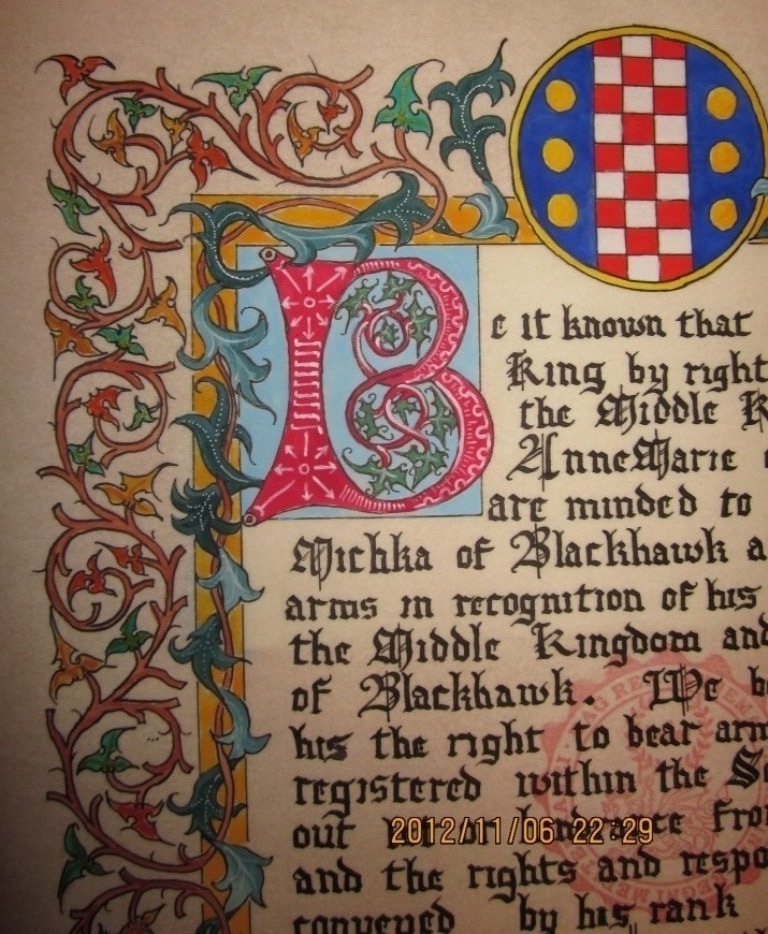 Be it known that
King by right
the Middle K
AnneMarie
are minded to
Michka of Blackhawk a
arms in recognition of his
the Middle Kingdom and
of Blackhawk. We b
his the right to bear arm
registered within the S
out
and the rights and respo
convened by his rank
2012/11/06 22:29